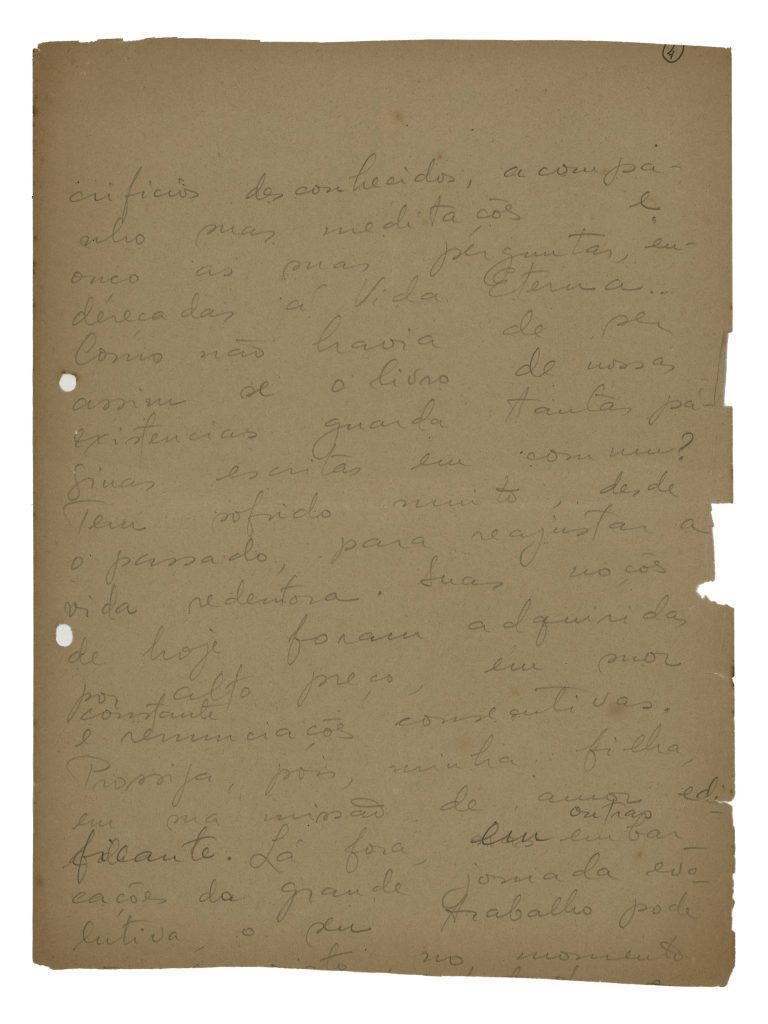 4
crificiõs desconhecidos, acompa-
nho suas meditações e
ouço as suas perguntas, en-
dereçadas á Vida Eterna...
Como não havia de ser
assim se o livro de nossas
existencias guarda tantas pá-
ginas escritas em comum?
Tem sofrido muito, desde
o passado, para reajustar a
vida redentora. Suas noções
de hoje foram adquiridas
por alto preço, em suor
constante
e renunciações consecutivas.
Prossija, pois, minha filha,
em sua missão de amor edi-
ficante. Lá fora, em outras embar
cações da grande jornada evo-
lutiva, o seu trabalho pode
no momento